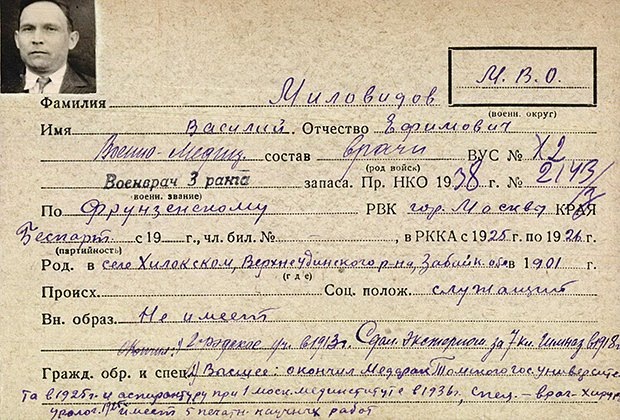 М.В.О.
(военн. округ)
Фамилия Миловидов
Имя Василий Отчество Ефимович
Военно-Медиц. состав врачи ВУС № Х2
(род войск)
Военврач 3 ранга запаса. Пр. НКО 1938 г. № 2143/
(военн. звание)
По Фрунзенскому РВК гор. Москвы КРАЯ
Беспарт. с 19 г., чл. бил. № , в РККА с 1925 г. по 1926 г.
(партийность)
Род. в селе Хилокском, Верхнеудинского р-на, Забайк. обл в 1901 г.
(где)
Происх. Соц. полож. служащий
Вн. образ. Не имеет
Окончил: 2 уч. в 1913г. Сдал экстерном за 7 кл. гимназ в 1918г
Гражд. обр. и спец. Высшее: окончил Медфак Томского госуниверсите
та в 1925 г и аспирантуру при 1 моск. мединституте в 1936г. Спец. – врач-хирург
уролог. имеет 5 печатн. научных работ